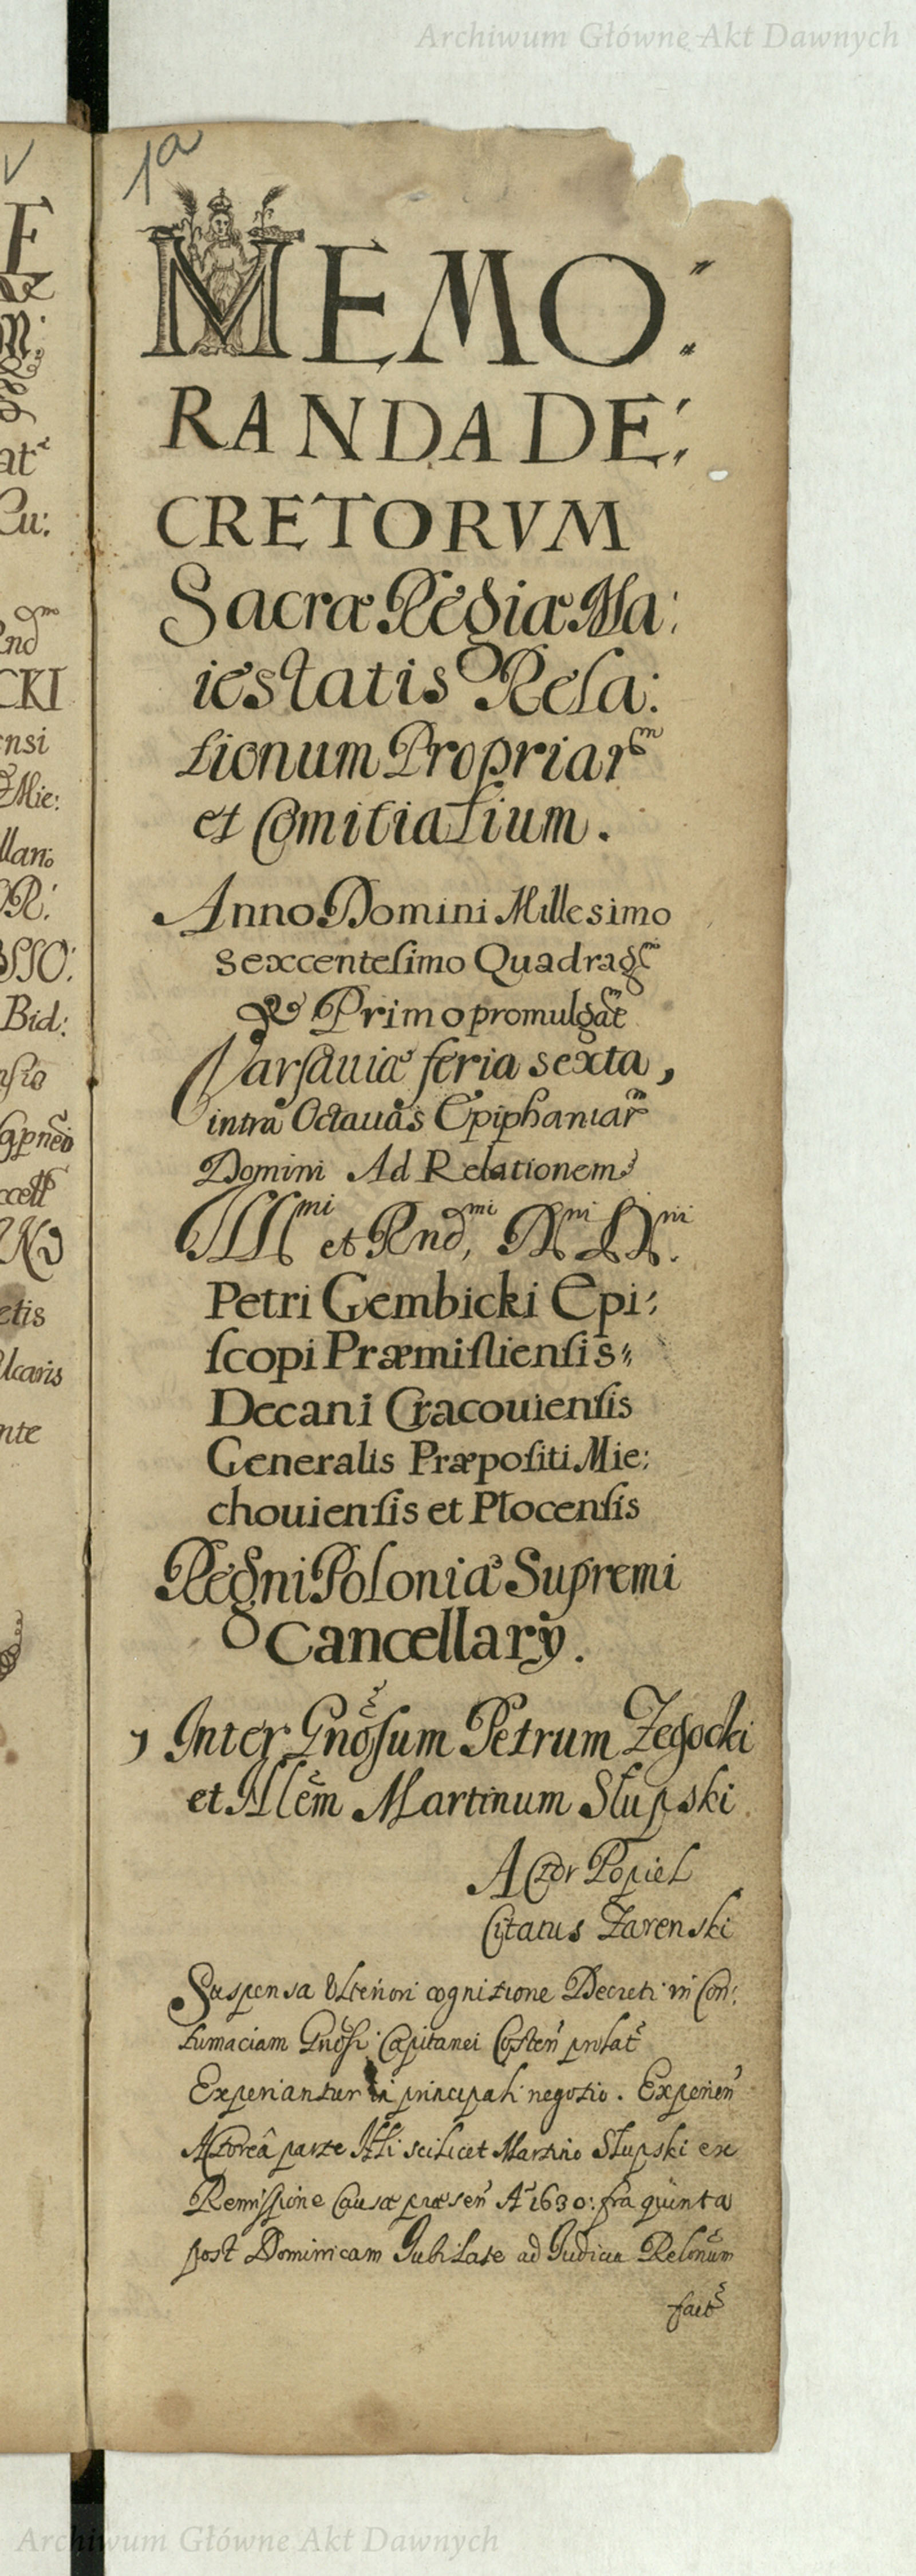 Archiwum Główne Akt Dawnych
1a
MEMO:
RANDA DE:
CRETORVM
Sacræ Regiæ Ma:
iestatis Rela:
tionum Propriarm
et Comitialium.
Anno Domini Millesimo
sexcentesimo Quadragm
& Primo promulgatm
Varsauiæ feria sexta,
intra Octauas Epiphaniarm
Domini Ad Relationem
Illmi et Rndmi, Dni Dni.
Petri Gembicki Epi:
scopi Præmisliensis
Decani Cracouiensis
Generalis Præpositi Mie:
chouiensis et Plocensis
Regni Poloniæ Supremi
Cancellarÿ.
Inter Gnosum Petrum Zegocki
et Nlem Martinum Słupski
Actor Popiel
Citatus Zarenski
Suspensa Vlteriori cognitione Decreti in Con:
tumaciam Gnosi Capitanei Costen prolat
Experiantur in principali negotio. Experien
Actoreâ parte Nli scilicet Martino Słupski ex
Remissione Causæ præsen Aº 1630: fra quinta
post Dominicam Jubilate ad Judicia Relonum
fact
E
at
Cu:
CKI
ensi
Mie:
llan:
Bid:
etis
nte
Archiwum Główne Akt Dawnych